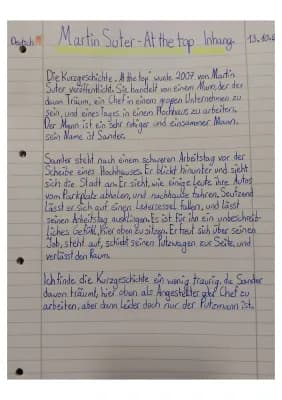 Deutsch Martin Suter - At the top Inhang. 13.10.
Die Kurzgeschichte "At the top" wurde 2007 von Martin
Suter veröffentlicht. Sie handelt von einem Mann, der den
davon Träum, ein Chef in einen großen Unternehmen zu
sein, und eines tages in einen Hochhaus zu arbeiten.
Der Mann ist ein sehr ruhiger und einsamer Mann,
sein Name ist Sander.
Saunter steht nach einem schweren Arbeitstag vor der
Scheibe eines Hochhauses. Er blickt hinunter und sieht
sich die Stadt an. Er sieht, wie einige Leute ihre Autos
vom Parkplatz abholen, und nachhause fahren. Seufzend
lässt er sich auf einen Ledersessel fallen, und lässt
seinen Arbeitstag ausklingen. Es ist für ihn ein unbeschreib-
liches Gefühl, hier oben zu sitzen. Er freut sich über seinen
Job, steht auf, schiebt seinen Putzwagen zur Seite, und
verlässt den Raum.
Ich finde die Kurzgeschichte ein wenig traurig, da Sander
davon träumt, hier oben als Angestellter oder Chef zu
arbeiten, aber dann leider doch nur der Putzmann ist.